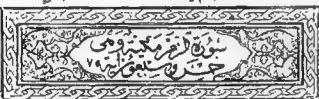 سورة الزمر مكية وهى
خمس وسبعون اية ٧٥